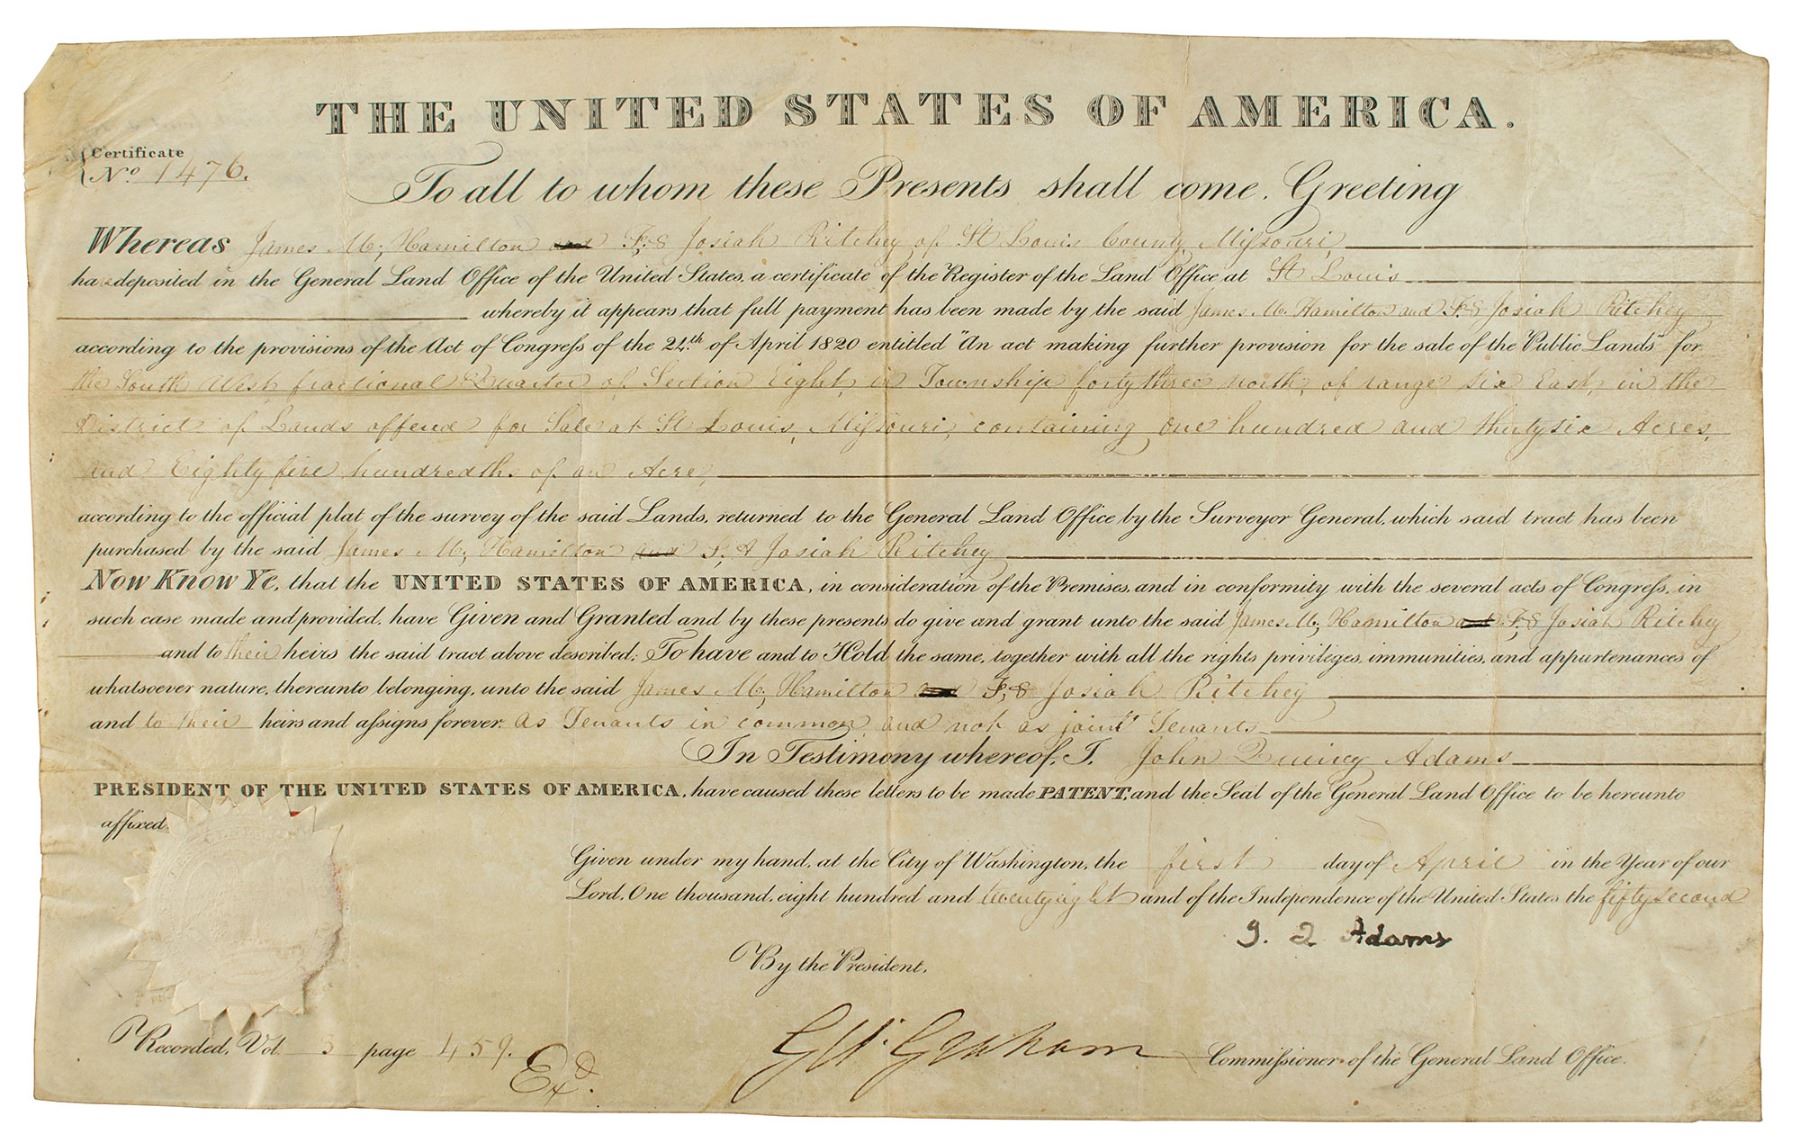 THE UNITED STATES OF AMERICA.
Certificate
No. 1476.
To all to whom these Presents shall come, Greeting
Whereas James M, Hamilton and F, S Josiah Ritchey of St Louis County Missouri,
have deposited in the General Land Office of the United States, a certificate of the Register of the Land Office at St Louis
whereby it appears that full payment has been made by the said James M. Hamilton and F. S Josiah Ritchey
according to the provisions of the Act of Congress of the 24th of April 1820 entitled "An act making further provision for the sale of the Public Lands" for
the South West fractional Quarter of Section Eight, in Township forty three north, of range six East, in the
District of Lands offered for Sale at St Louis, Missouri, containing one hundred and thirty six Acres,
and Eighty five hundredths of an Acre,
according to the official plat of the survey of the said Lands, returned to the General Land Office by the Surveyor General, which said tract has been
purchased by the said James M, Hamilton and Josiah Ritchey
Now Know Ye, that the UNITED STATES OF AMERICA, in consideration of the Premises, and in conformity with the several acts of Congress, in
such case made and provided, have Given and Granted and by these presents do give and grant unto the said James M, Hamilton and F, S Josiah Ritchey
and to their heirs the said tract above described; To have and to Hold the same, together with all the rights privileges, immunities, and appurtenances of
whatsoever nature, thereunto belonging, unto the said James M, Hamilton and F, S Josiah Ritchey
and to their heirs and assigns forever. as Tenants in common, and not as joint Tenants
In Testimony whereof, I, John Quincy Adams
PRESIDENT OF THE UNITED STATES OF AMERICA, have caused these letters to be made PATENT, and the Seal of the General Land Office to be hereunto
affixed.
Given under my hand, at the City of Washington, the first day of April in the Year of our
Lord, One thousand, eight hundred and twenty eight and of the Independence of the United States the fifty second
J. Q. Adams
By the President,
Geo. Graham Commissioner of the General Land Office.
Recorded, Vol. 3 page 459. Exd.